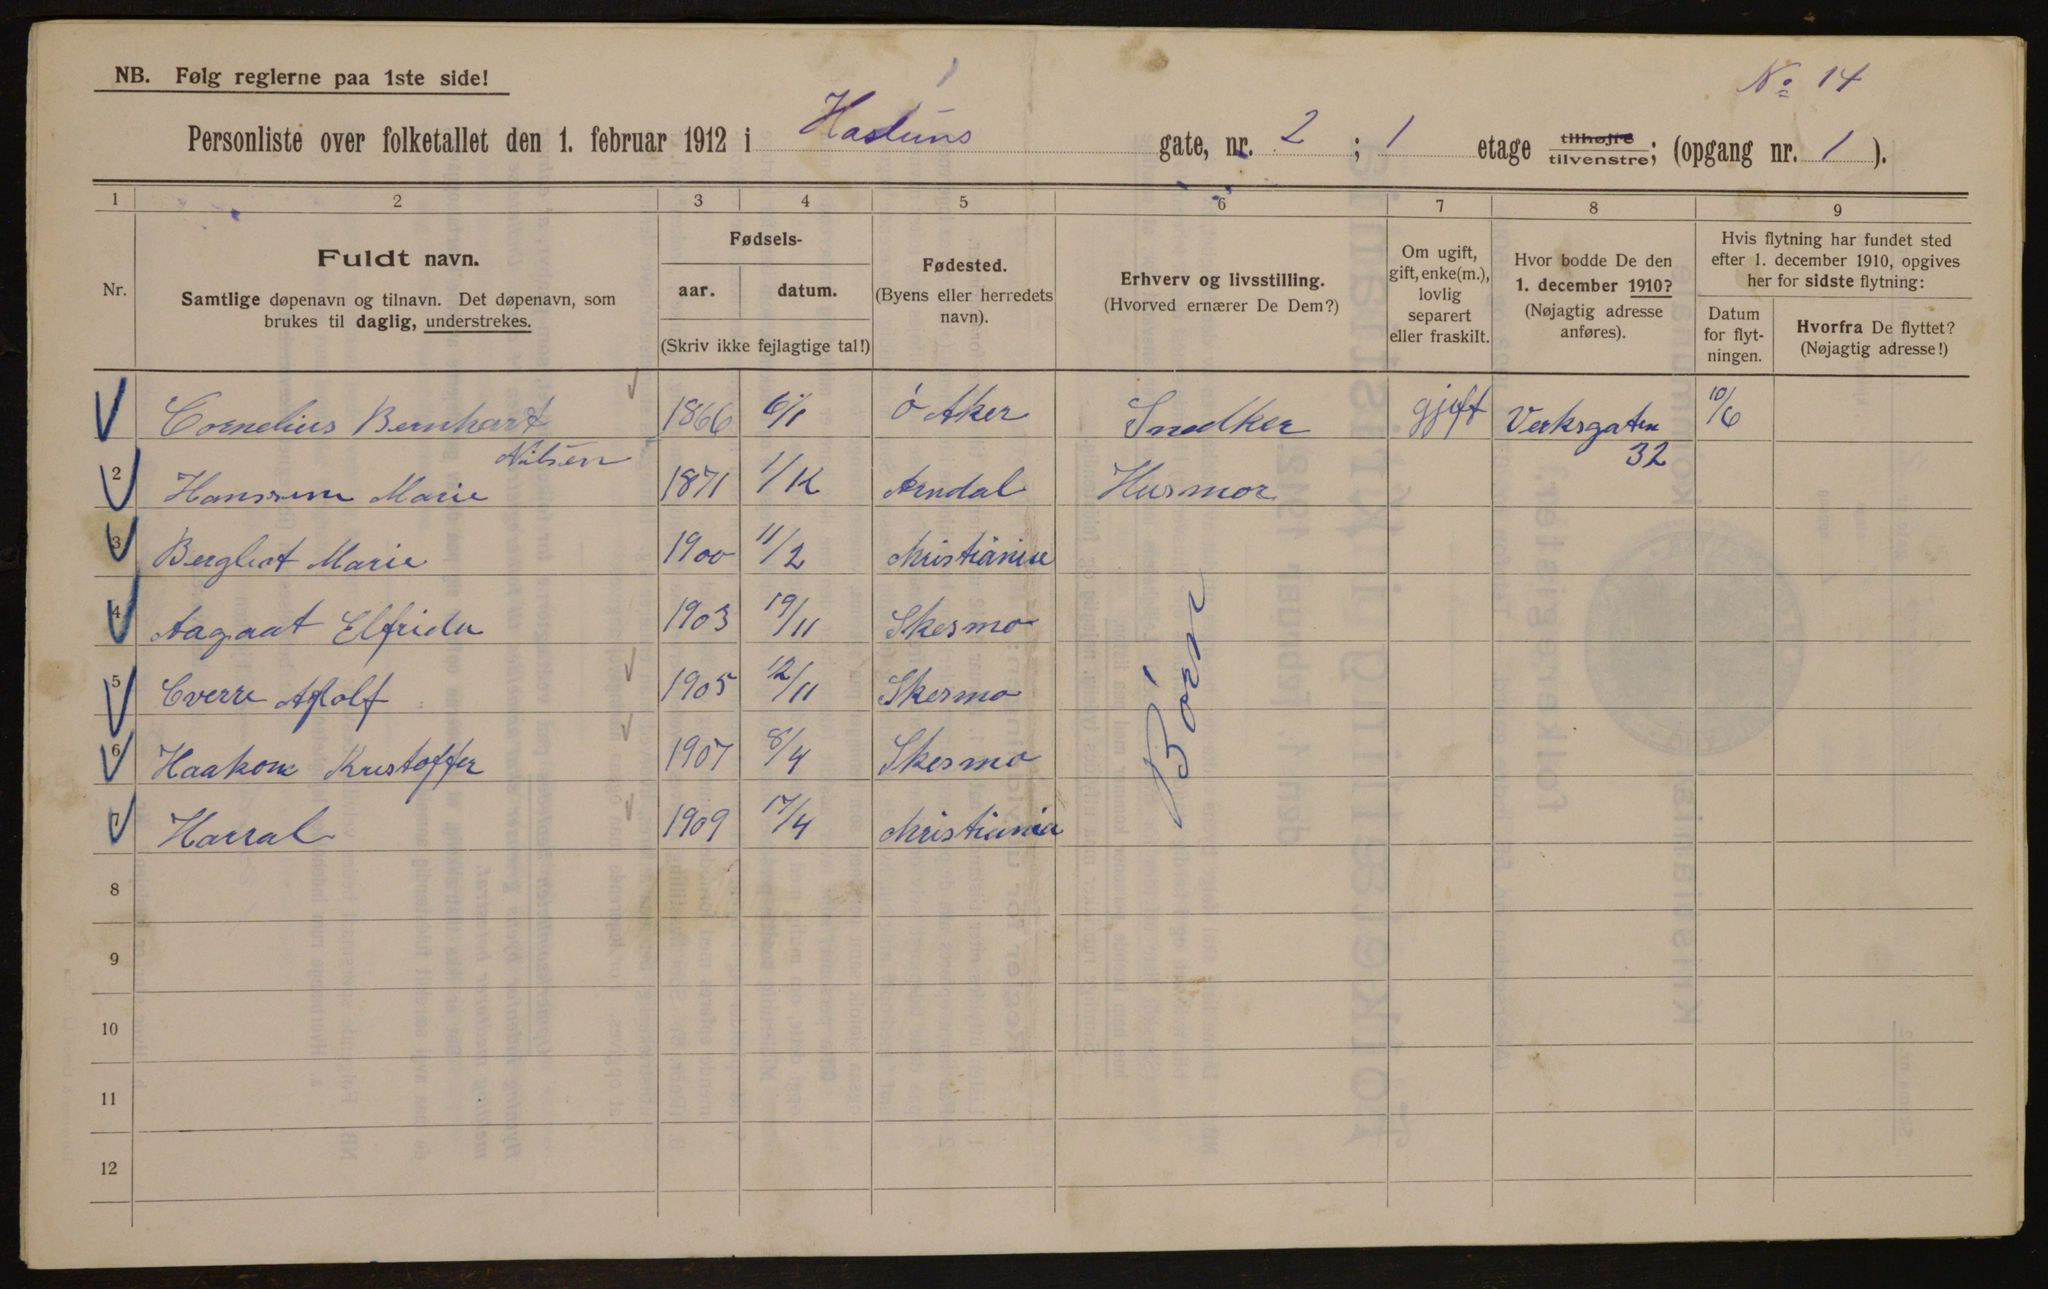 NB. Følg reglerne paa 1ste side!
No 14
Personliste over folketallet den 1. februar 1912 i Hasluns gate, nr. 2 ; 1 etage tilhøjre tilvenstre; (opgang nr. 1 ).
1 2 3 4 5 6 7 8 9
Nr.
Fuldt navn.
Samtlige døpenavn og tilnavn. Det døpenavn, som
brukes til daglig, understrekes.
Fødsels-
aar. datum.
(Skriv ikke fejlagtige tal!)
Fødested.
(Byens eller herredets
navn).
Erhverv og livsstilling.
(Hvorved ernærer De Dem?)
Om ugift,
gift, enke(m.),
lovlig
separert
eller fraskilt.
Hvor bodde De den
1. december 1910?
(Nøjagtig adresse
anføres).
Hvis flytning har fundet sted
efter 1. december 1910, opgives
her for sidste flytning:
Datum
for flyt-
ningen.
Hvorfra De flyttet?
(Nøjagtig adresse!)
Cornelius Bernhart 1866 6/1 ö Aker Snedker gjeft Verksgaten 10/6
Nilsen 32
2 Marie 1871 Arndal Husmor
3 Berglot Marie 1900 11/2
4 Aagaat Elfrida 1903 19/11 Skesmo
5 Cverre Adolf 1905 12/11 Skesmo
6 Haakon Kristoffer 1907 8/4 Skesmo
7 Harral 1909 17/4 Christiania
Börn
8
9
10
11
12